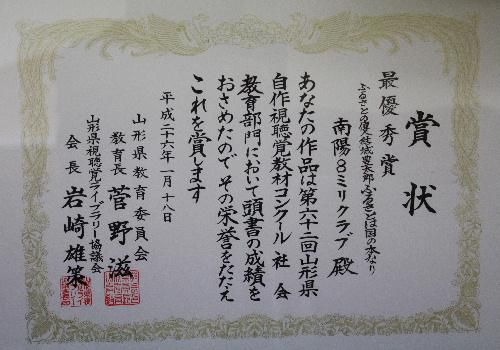 賞状
最優秀賞
ふるさとの偉人結城豊太郎ふるさとは国の本なり
南陽8ミリクラブ殿
あなたの作品は第六十二回山形県
自作視聴覚教材コンクール社会
教育部門において頭書の成績を
おさめたのでその栄誉をたたえ
これを賞します
平成二十六年一月十八日
山形県教育委員会
教育長 菅野滋
山形県視聴覚ライブラリー協議会
会長 岩崎雄策